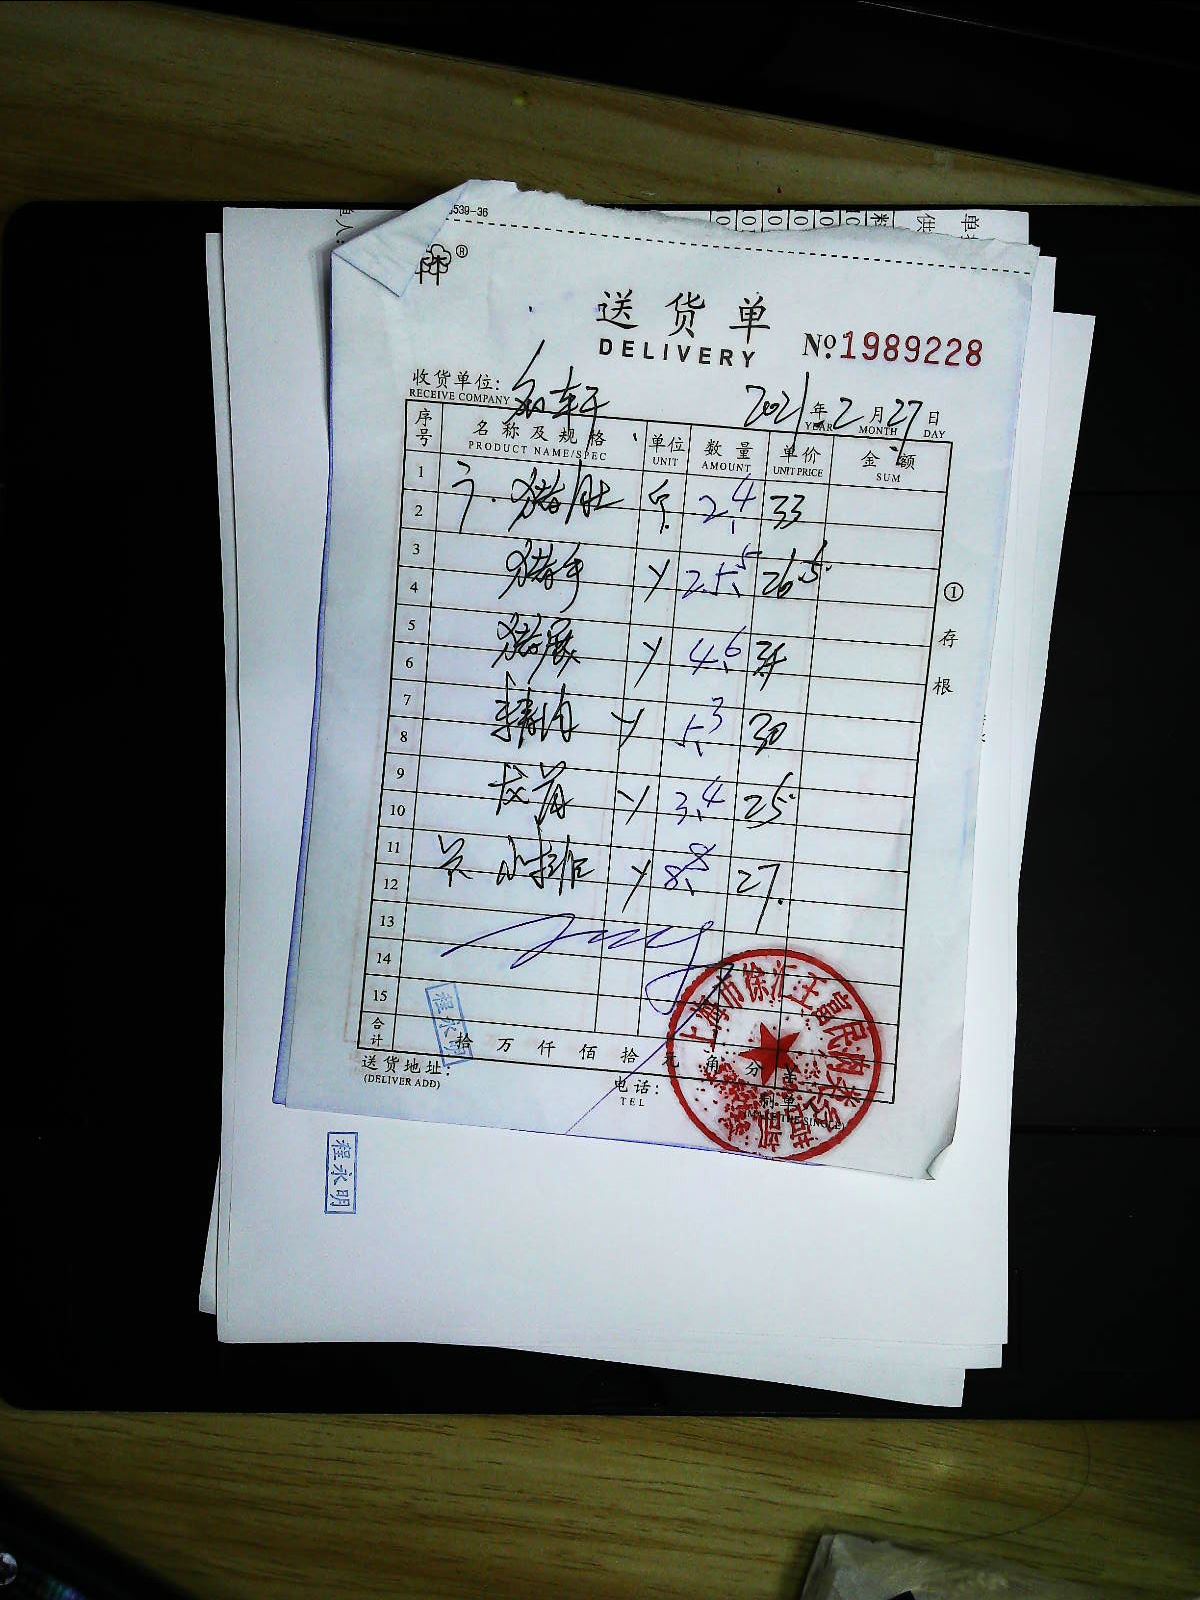 539-36
®
送货单
DELIVERY
No.1989228
收货单位:
RECEIVE COMPANY
2021年2月27日
YEAR MONTH DAY
序号 名称及规格 单位 数量 单价 金额
PRODUCT NAME/SPEC UNIT AMOUNT UNIT PRICE SUM
1
2 猪肚 斤 2.4 33
3
4 猪手 25.5 26.5
5
6 猪展 4.6
7
8 精肉 5.3 30
9
10 3.4 25
11
12 小排 8.8 27
13
14
15
合计 拾万仟佰拾元角分
送货地址:
(DELIVER ADD)
电话:
TEL
制单
①存根
程永明
上海市徐汇王富民肉类
程永明